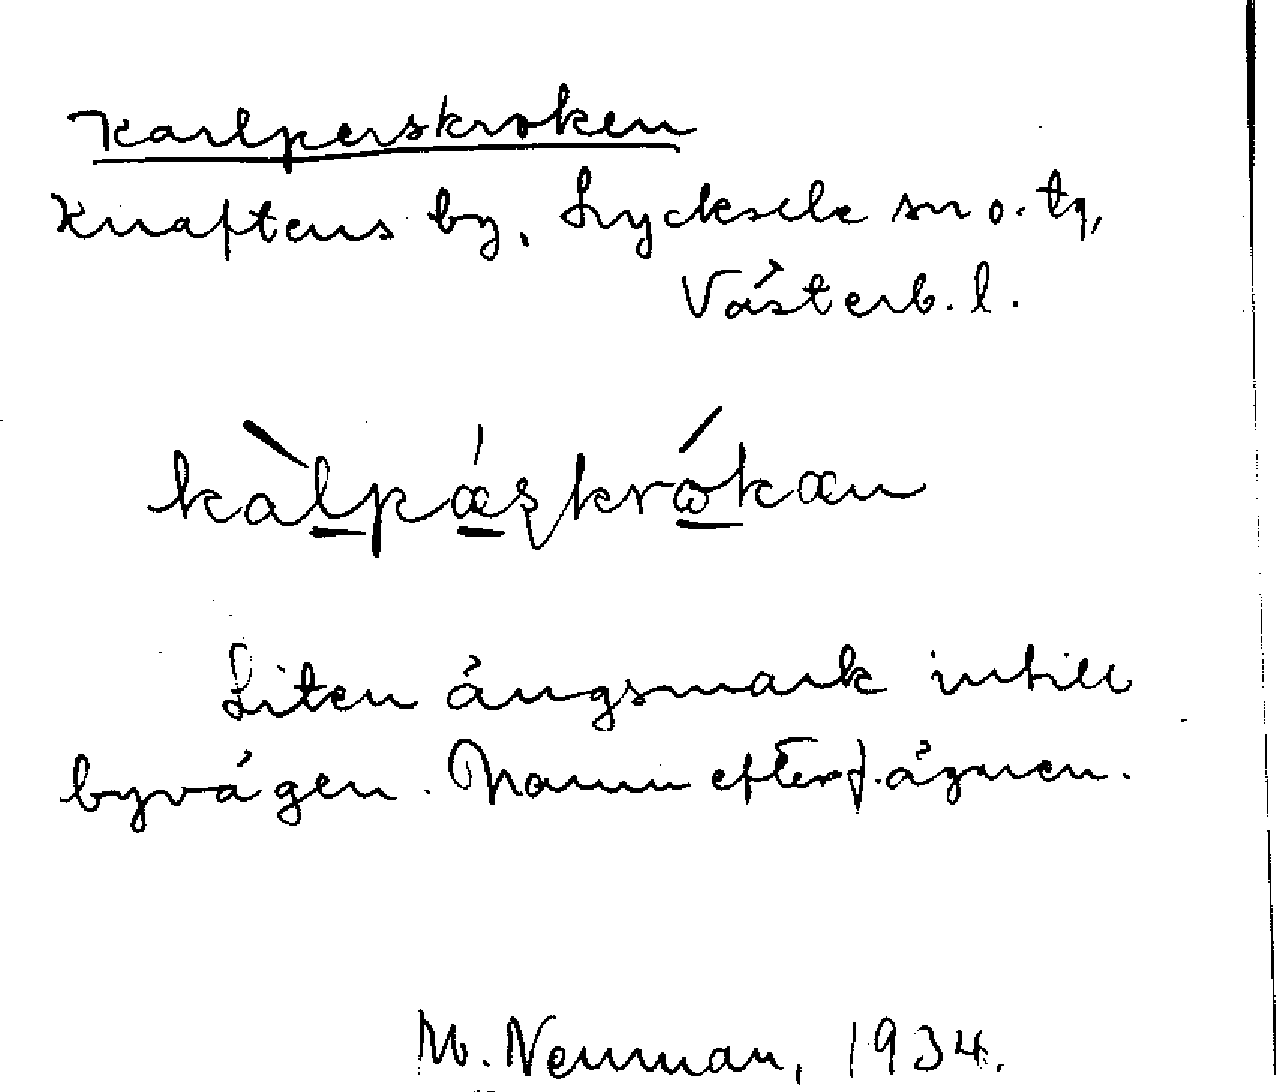 Karlperskroken
Knaftens by, Lycksele sn o. tg,
Västerb. l.
kàlpǽşkrώkæn
Liten ängsmark intill
byvägen. Namn efter f. ägaren.
M. Neuman, 1934.